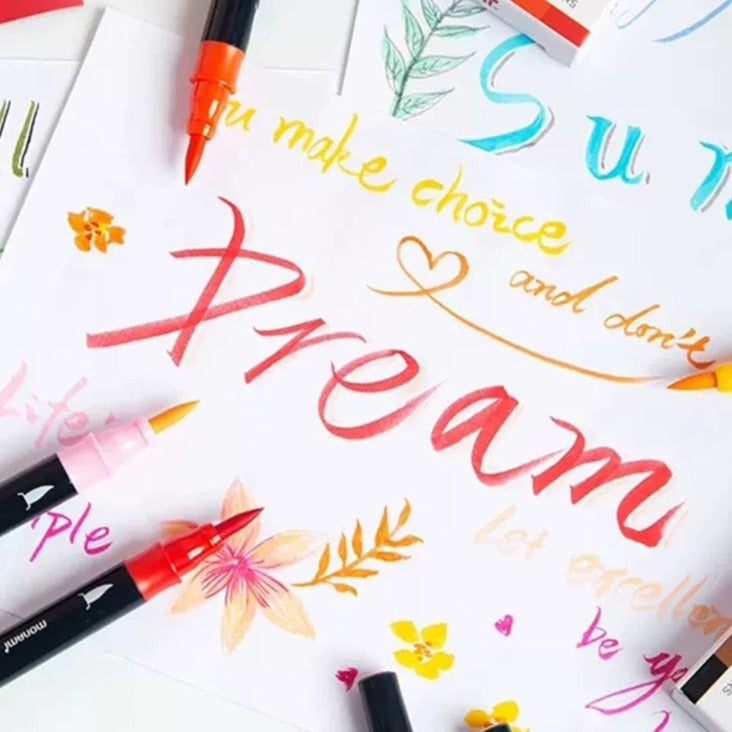 Su
u make choice
and don't
Dream
Life
ple
Let excellen
be yo
monami